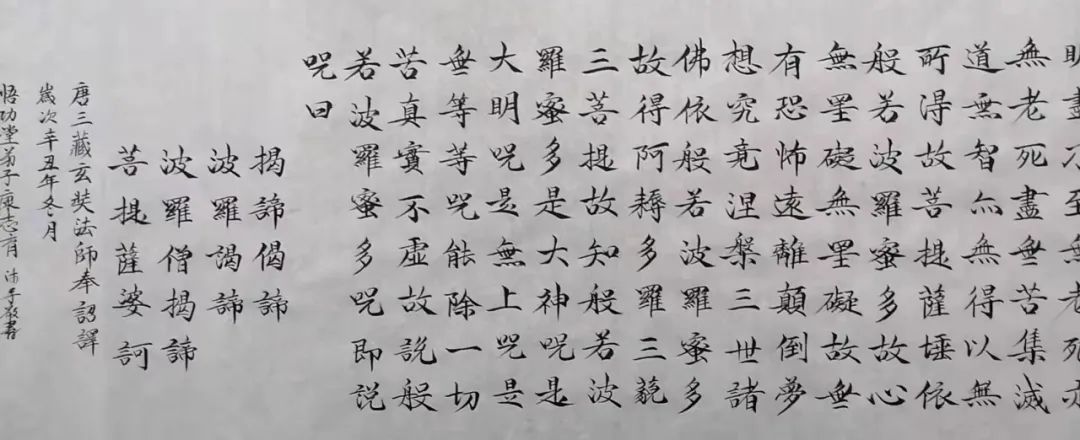 明盡乃至無老死亦
無老死盡無苦集滅
道無智亦無得以無
所得故菩提薩埵依
般若波羅蜜多故心
無罣礙無罣礙故無
有恐怖遠離顛倒夢
想究竟涅槃三世諸
佛依般若波羅蜜多
故得阿耨多羅三藐
三菩提故知般若波
羅蜜多是大神咒是
大明咒是無上咒是
無等等咒能除一切
苦真實不虛故說般
若波羅蜜多咒即說
咒曰
揭諦偈諦
波羅謁諦
波羅僧揭諦
菩提薩婆訶
唐三藏玄奘法師奉詔譯
歲次辛丑年冬月
悟功堂弟子志有沐手敬書